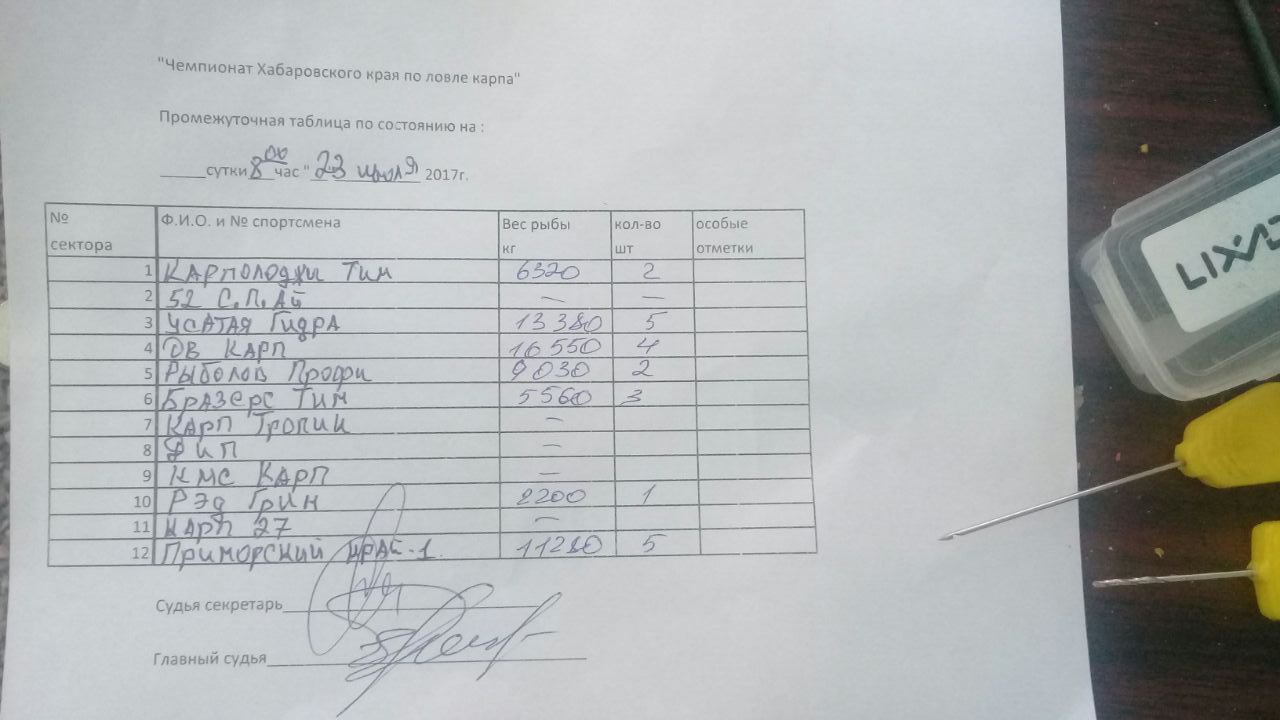 "Чемпионат Хабаровского края по ловле карпа"
Промежуточная таблица по состоянию на :
_____сутки 8 00 час "23 июля 2017г.
№ сектора Ф.И.О. и № спортсмена Вес рыбы кг кол-во шт особые отметки
1 Карполоджи Тим 6320 2
2 52 С.П.Ай — —
3 Усатая Гидра 13380 5
4 ДВ Карп 16550 4
5 Рыболов Профи 9030 2
6 Бразерс Тим 5560 3
7 Карп Тропик —
8 ДиП —
9 КМС Карп —
10 Рэд Грин 2200 1
11 Карп 27 —
12 Приморский край-1 11280 5
Судья секретарь
Главный судья